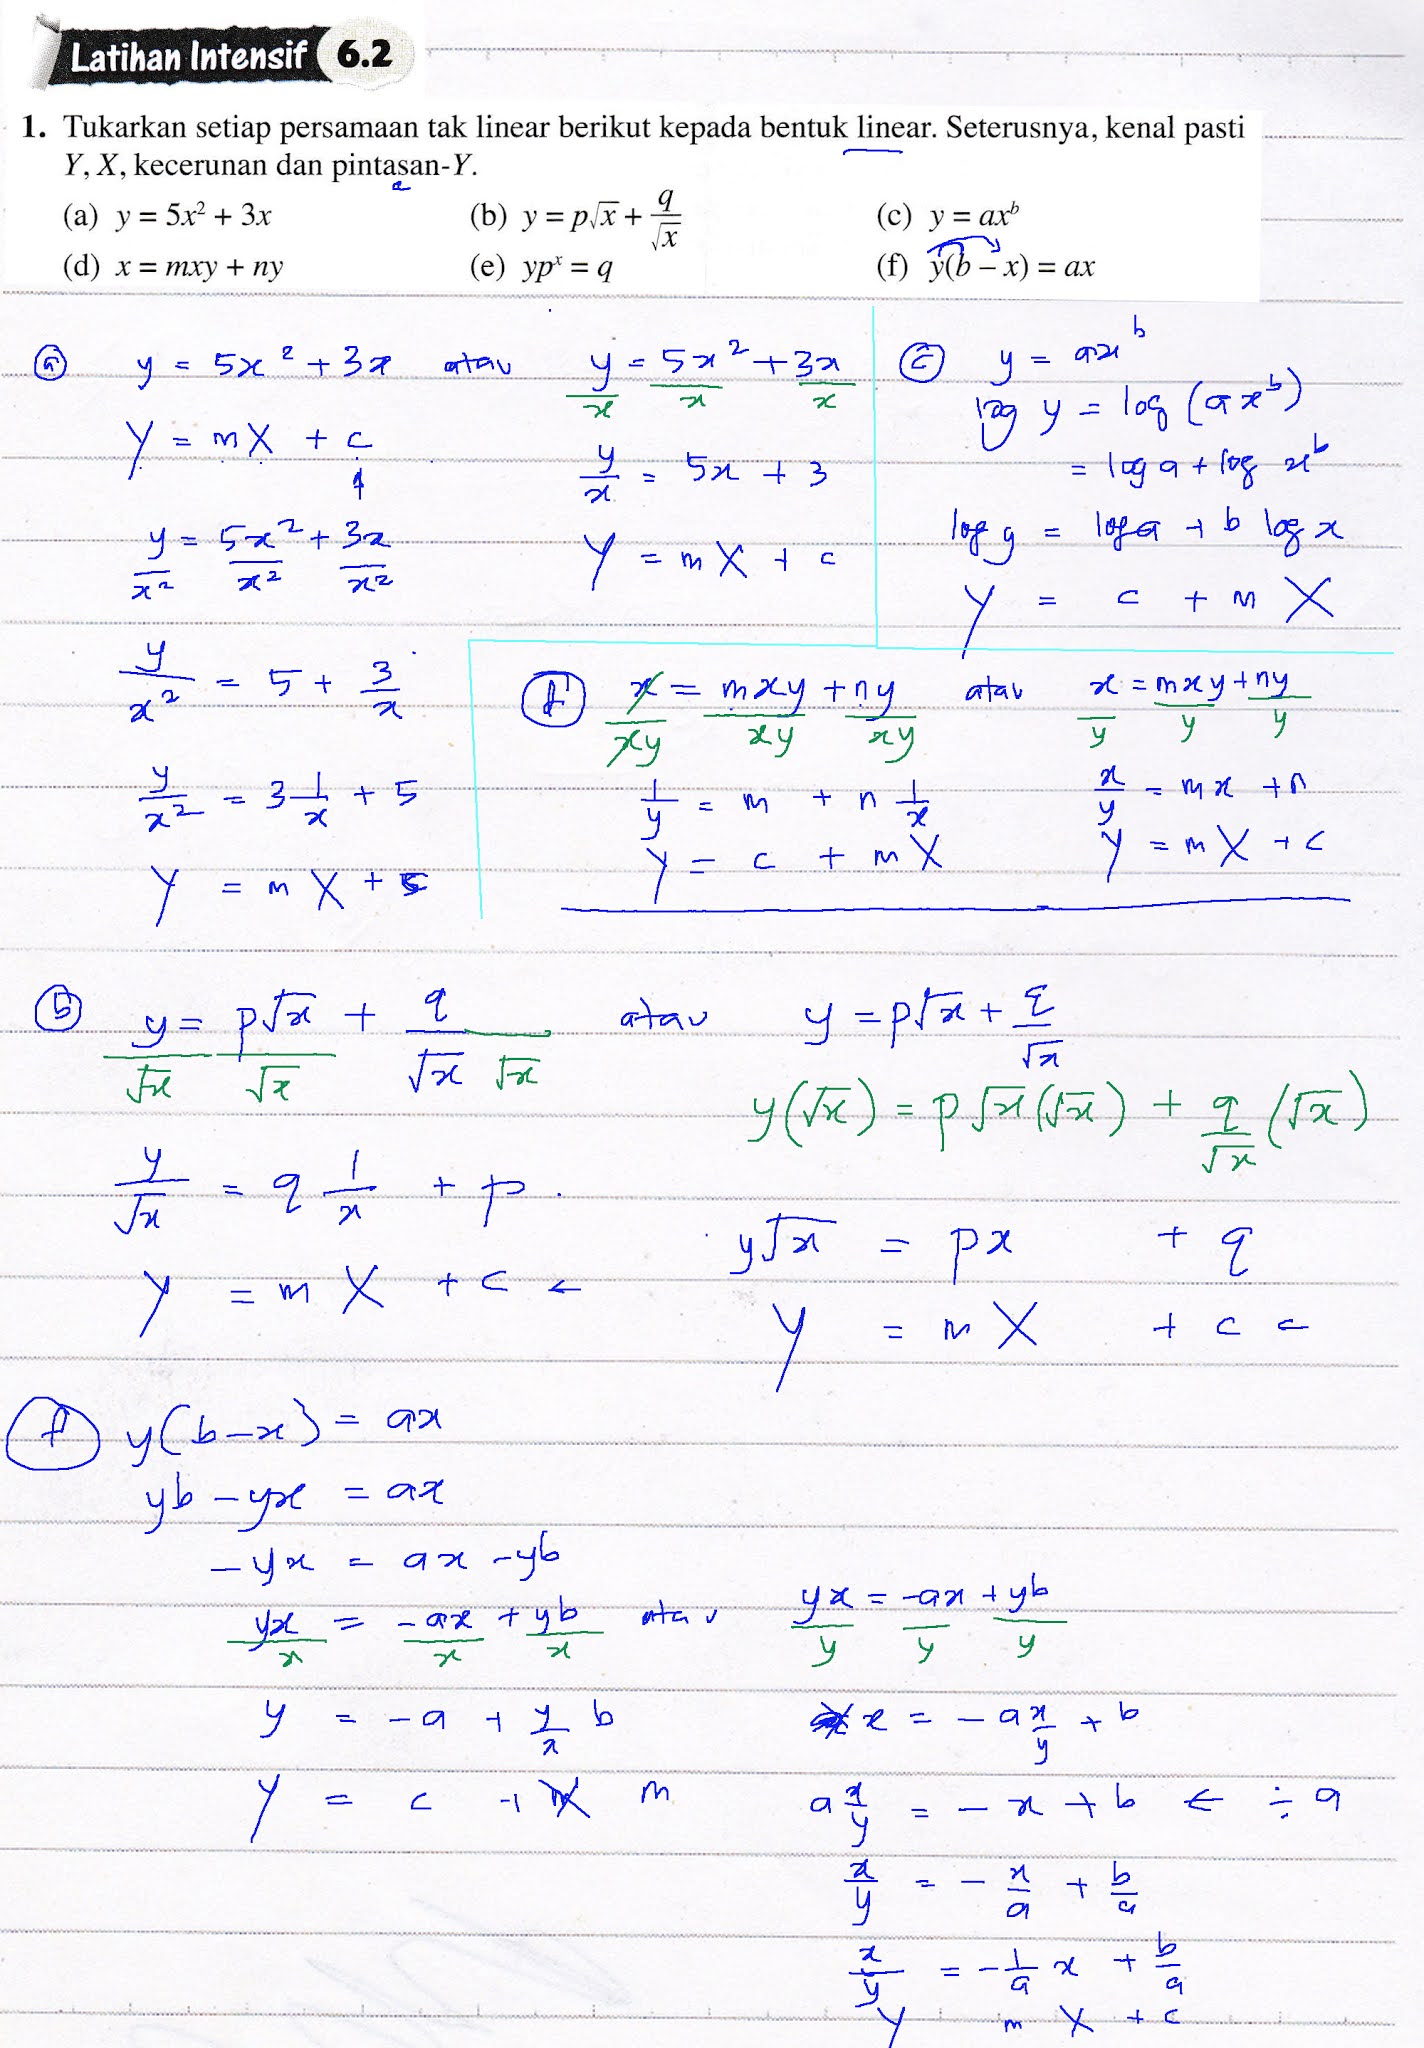 Latihan Intensif 6.2
1. Tukarkan setiap persamaan tak linear berikut kepada bentuk linear. Seterusnya, kenal pasti
Y, X, kecerunan dan pintasan-Y.
(a) y = 5x² + 3x (b) y = p√x + q/√x (c) y = axᵇ
(d) x = mxy + ny (e) ypˣ = q (f) y(b – x) = ax
(a) y = 5x² + 3x atau y/x = 5x²/x + 3x/x
Y = mX + c
y/x = 5x + 3
y/x² = 5x²/x² + 3x/x²
Y = mX + c
y/x² = 5 + 3/x
y/x² = 3 1/x + 5
Y = mX + c
(c) y = axᵇ
log y = log (axᵇ)
= log a + log xᵇ
log y = log a + b log x
Y = c + m X
(d) x/xy = mxy/xy + ny/xy atau x/y = mxy/y + ny/y
1/y = m + n 1/x x/y = mx + n
Y = c + mX Y = mX + c
(b) y/√x = p√x/√x + q/√x √x atau y = p√x + q/√x
y(√x) = p√x(√x) + q/√x (√x)
y/√x = q 1/x + p.
y√x = px + q
Y = mX + c ←
Y = mX + c
(f) y(b – x) = ax
yb – yx = ax
– yx = ax – yb
yx/x = – ax/x + yb/x atau yx/y = –ax/y + yb/y
y = – a + y/x b x = – a x/y + b
Y = c + X m a x/y = – x + b ← ÷ a
x/y = – x/a + b/a
x/y = – 1/a x + b/a
Y m X + c